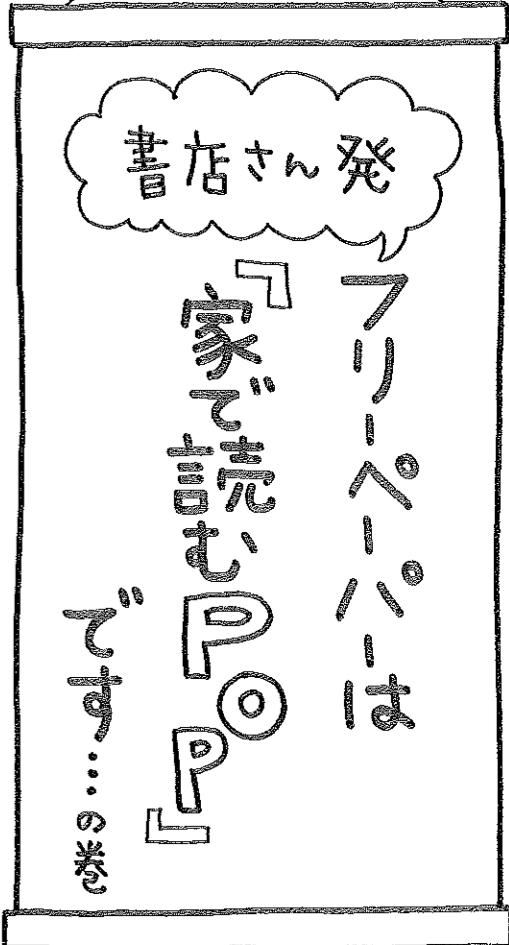 書店さん発
フリーペーパーは
『家で読むPOP』
です…の巻